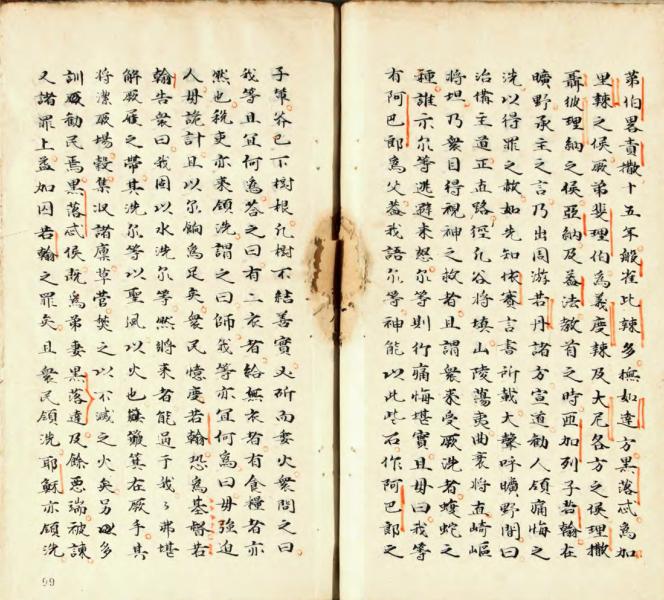 第伯畧責撒十五年般雀比辣多撫如達方黑落忒爲加
里辣之侯厥弟斐理伯爲義度辣及大尼各方之侯理撒
聶彼理納之侯亞納及蓋法教首之時匝加列子若翰在
曠野承主之言乃出周游若丹諸方宣道勸人領痛悔之
洗以得罪之赦如先知依賽言書所載大聲呼曠野間曰
治搆主道正直路徑凡谷將填山陵蕩夷曲褭將直崎嶇
將坦乃衆目得視神之救者且謂衆來受厥洗者蝮蛇之
種誰示尔等逃避來怒尔等則行痛悔堪實且毋曰我等
有阿巴郎爲父葢我語尔等神能以此些石作阿巴郎之
子第斧已下樹根凡樹不結善實必斫而委火衆問之曰
我等且宜何爲答之曰有二衣者給無衣者有食糧者亦
然也稅吏亦來領洗謂之曰師我等亦宜何爲曰毋強迫
人毋詭計且以尔餉爲足矣衆民憶度若翰恐爲基督若
翰告衆曰我固以水洗尔等然將來者能過于我我弗堪
解厥屨之帶其洗尔等以聖風以火也簸箕在厥手其
將潔厥場穀集収諸廩草焚之以不滅之火矣另多
訓厥勸民焉黑落忒侯既爲弟妻黑落達及餘惡端被諫
又諸罪上益加囚若翰之罪矣且衆民領洗耶穌亦領洗
99